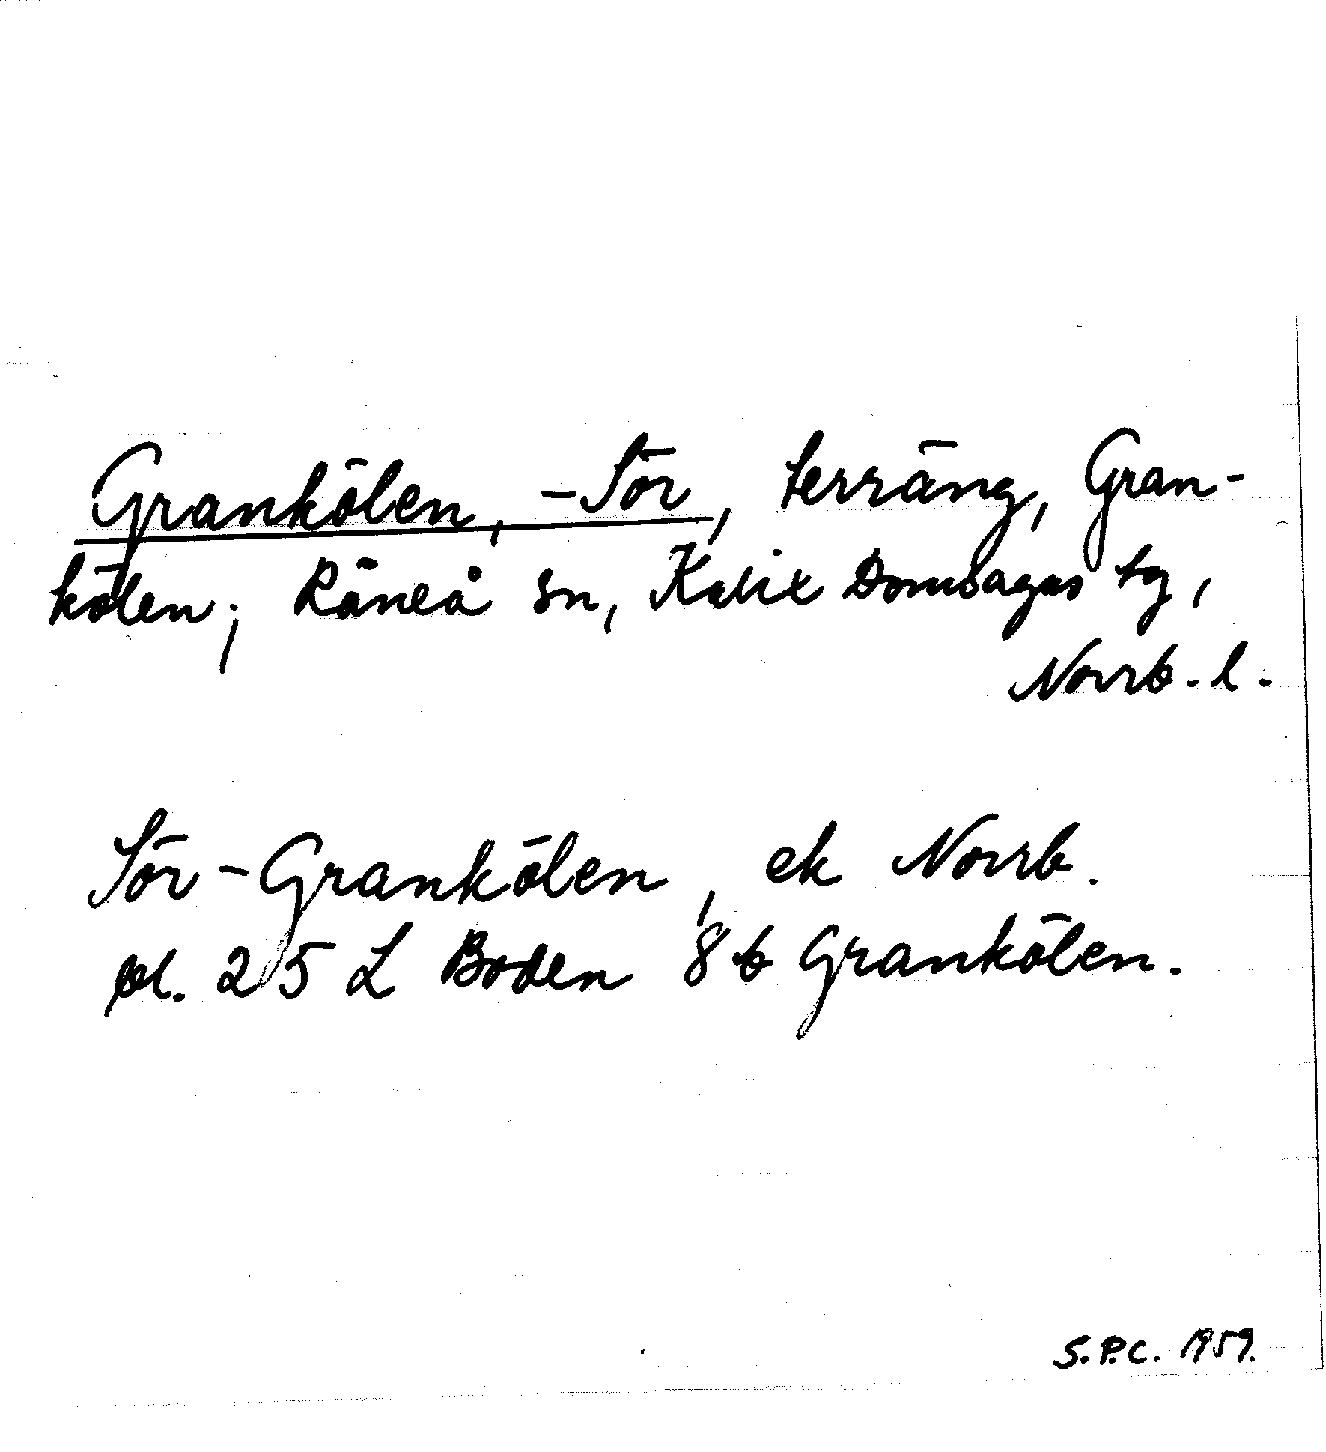 Grankölen, -Sör, terräng, Gran-
kölen; Råneå sn, Kalix Domsagas tg,
Norrb. l.
Sör-Grankölen, ek Norrb.
bl. 25 L Boden 8b Grankölen.
S.P.C. 1959.